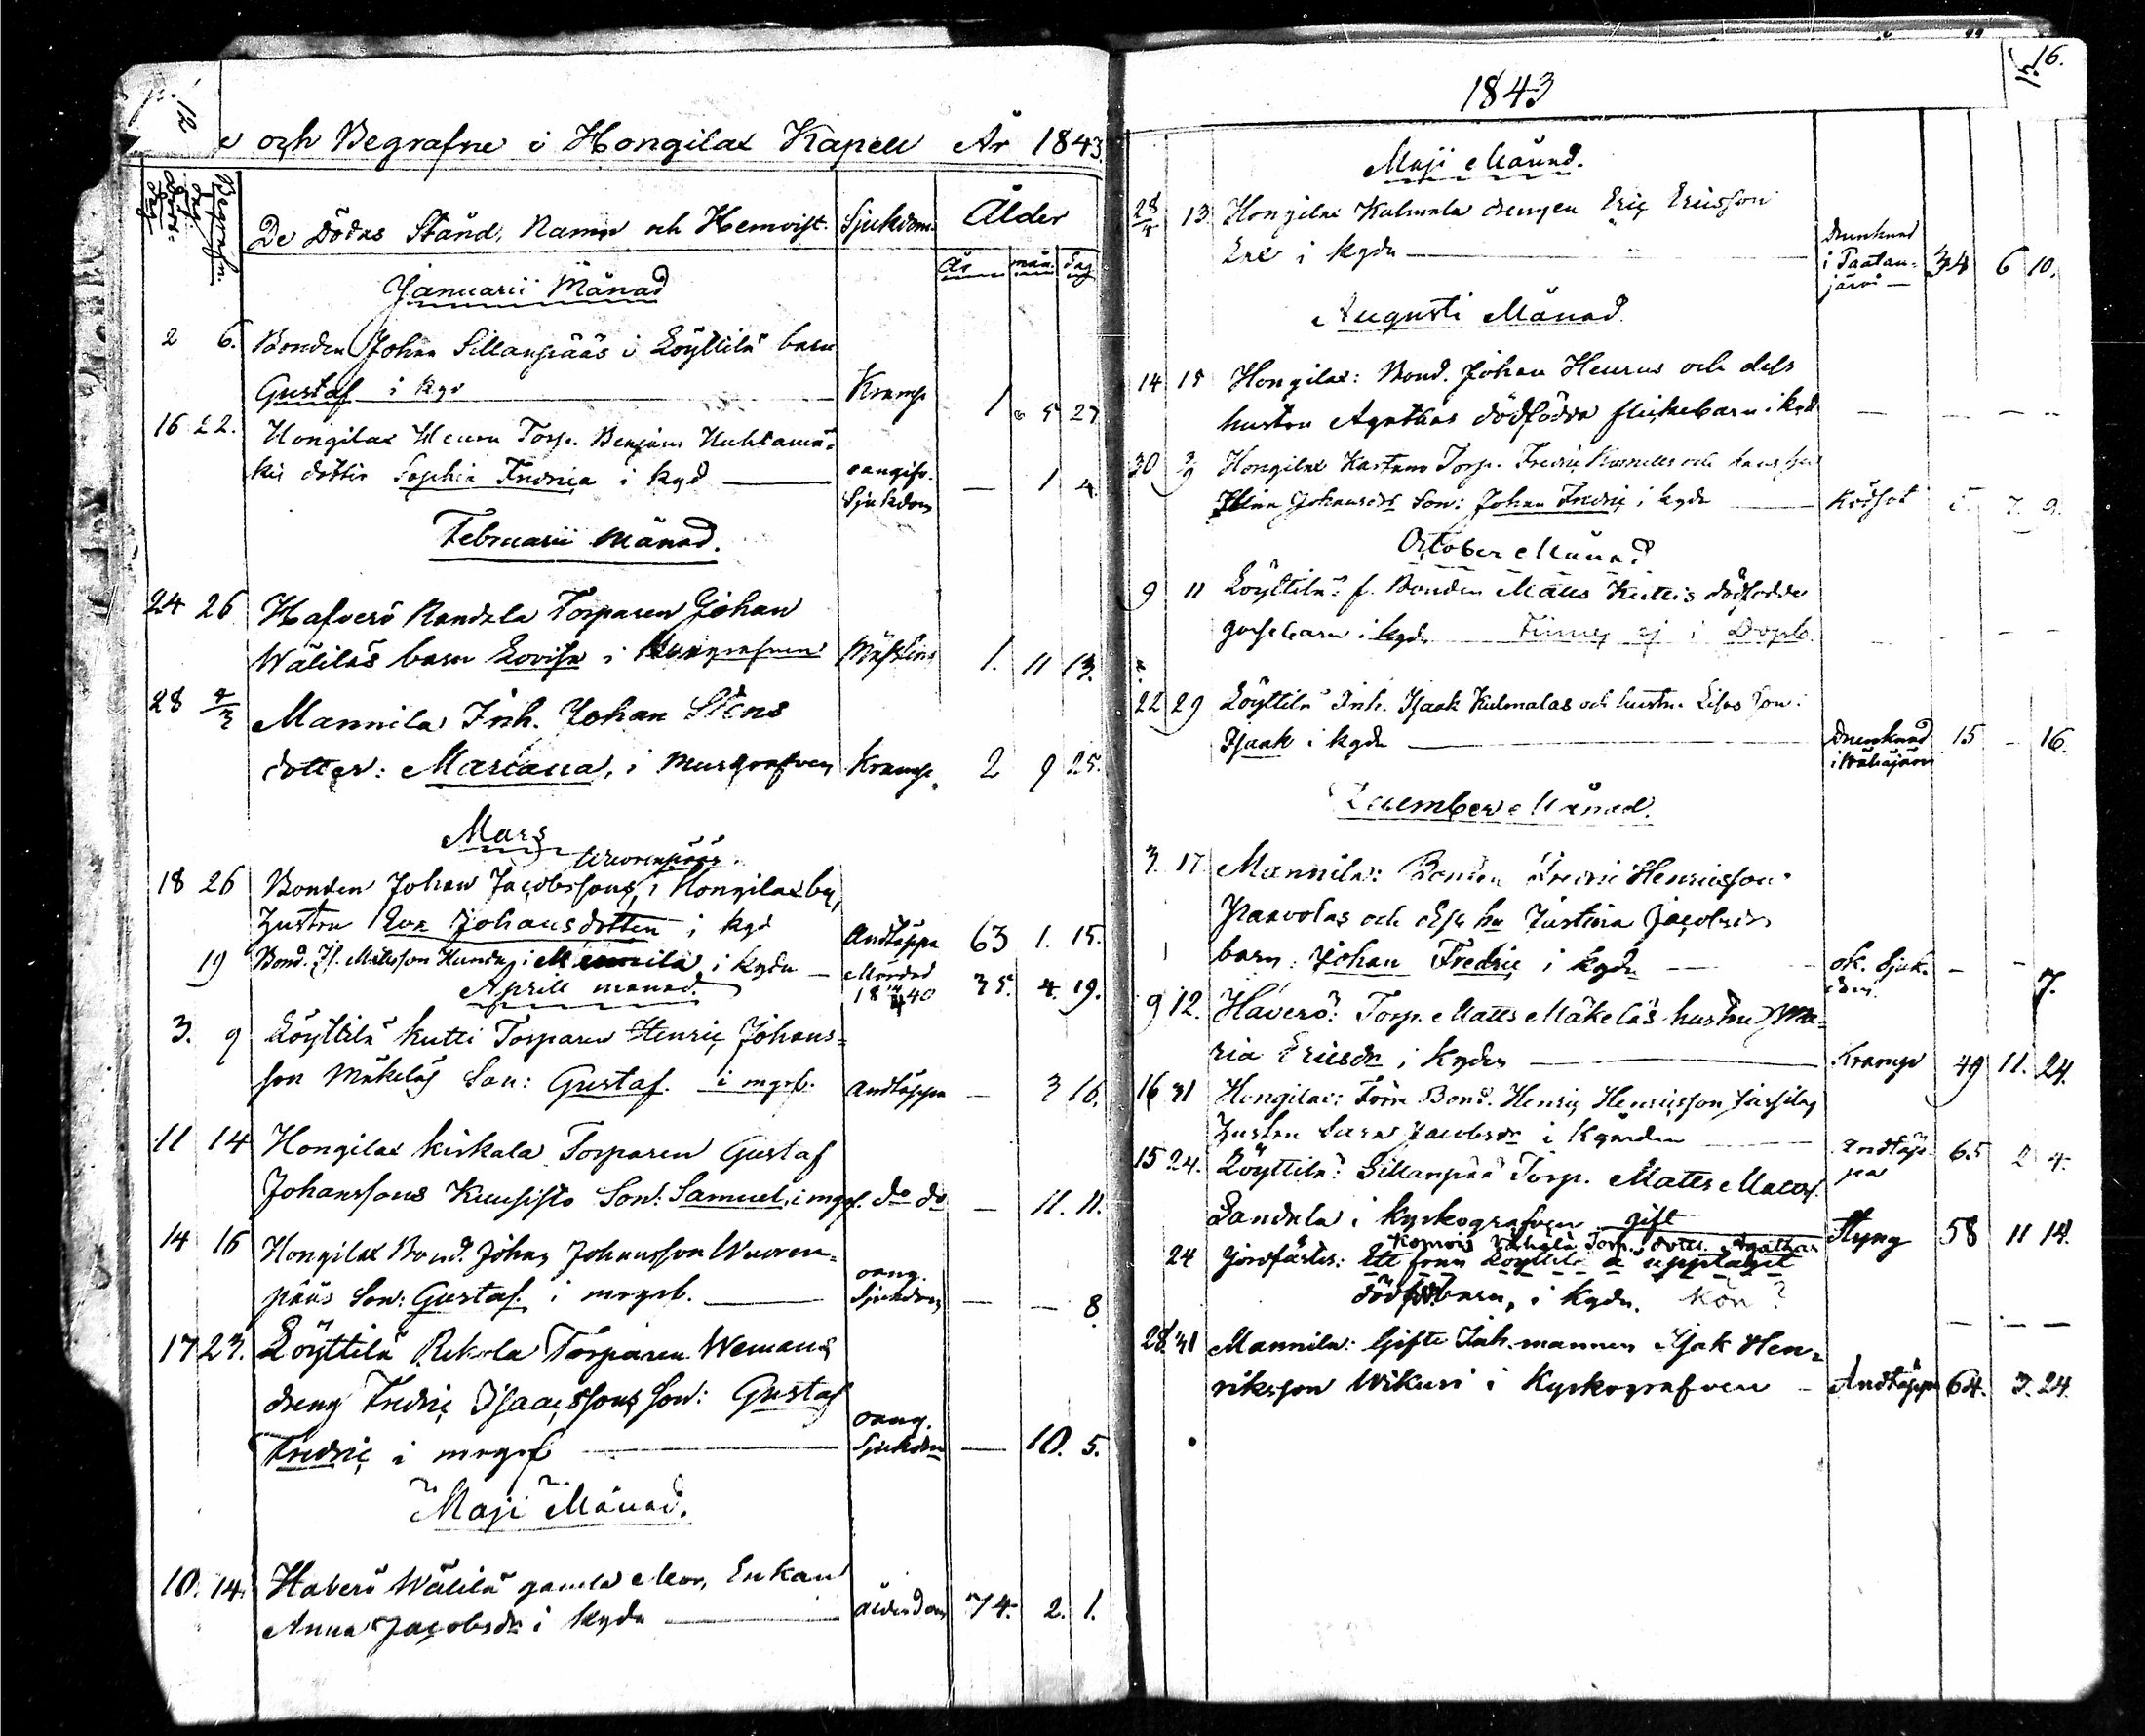 och Begrafne i Hongilax Kapell År 1843.
De Dödas Stånd, Namn och Hemvist. Sjukdom. Ålder
År mån. dag
Januarii Månad
2 6. Bonden Johan Sillanpääs i Löyttilä barn
Gustaf i kgd Kramp 1 5 27
16 22. Hongilax Torp. Benjam Huhtamä=
kis dotter Sophia Fredrica i kgd oangifv. Sjukdom — 1 4.
Februarii Månad.
24 26 Hafverö Torparen Johan
Wäliläs barn Lovisa i Mässling 1. 11 13.
28 Mannila Inh. Johan Stens
dotter: Mariana, i murgrafven Kramp. 2 9 25.
Mars
Wuorenpääs
18 26 Bonden Johan Jacobssons i Hongilax by,
hustru Eva Johansdotter i kgd Andtäppa 63 1. 15.
19 Bond. Mattsson i Mannila, i kgdn — Mördad 1840 35. 4. 19.
Aprill månad
3. 9 Löyttilä Kutti Torparen Henric Johans=
son Mäkeläs Son: Gustaf. i mgrf. Andtäppa — 3 16.
11 14 Hongilax Kirkala Torparen Gustaf
Johanssons Kuusisto Son: Samuel, i mgrf. do do — 11. 11.
14 16 Hongilax Bond. Johan Johansson Wuoren=
pääs Son: Gustaf. i mrgrf. — oang. Sjukdom — — 8
17 23. Löyttilä Rekola Torparen Wemans
dreng Fredric Isaacssons Son: Gustaf
Fredric i mrgrf — oang. Sjukdom — 10. 5.
Maji Månad.
10. 14. Haverö Wälilä gamla Mor, Enkan
Anna Jacobsdr i kgdn — ålderdom 74. 2. 1.
16.
1843
Maji Månad.
28/4 13 Hongilax Kulmala drengen Eric Ericsson
i kgdn — Drunknad
i Paatan=
järvi — 34 6 10.
Augusti Månad
14 15 Hongilax: Bond. Johan och dess
hustru Agathas dödfödda flickebarn i kgd — — — —
30 3/9 Hongilax Torp. Fredric och hans
Johansdr Son: Johan Fredric i kgdn — Rödsot
October Månad
9 11 Löyttilä: f. Bonden Matts Kuttis dödfödda
gossebarn i kgdn Finnes ej i Dopb.
22 29 Löyttilä Inh. Isaak Kulmalas och hustru Lisas Son:
Isaak i kgdn — Drunknad 15 — 16.
December Månad.
3. 17 Mannila: Bonden Fredric Henricsson
Paavolas och dess hu Justina Jacobsdrs
barn: Johan Fredric i kgdn — ok. Sjuk=
dom. — — 7.
9 12. Haverö: Torp. Matts Mäkeläs hustru Ma=
ria Ericsdr i kgdn — Kramp 49 11. 24.
16 31 Hongilax: Förre Bond. Henric Henricsson
hustru Sara Jacobsdr i kgården — Andtäp=
pa 65 2 4.
15 24. Löyttilä: Sillanpää Torp. Matts Mattss.
Sandela i kyrkografven gift Styng 58 11 14.
Torp. dotter Agathas
24 Jordfästes: Ett från Löyttilä upptaget
dödf. barn, i kgdn. Kön? — — —
28 31 Mannila: Gifte Inh. mannen Isak Hen=
riksson Wikuri i Kyrkografven — Andtäppa 64. 3. 24.